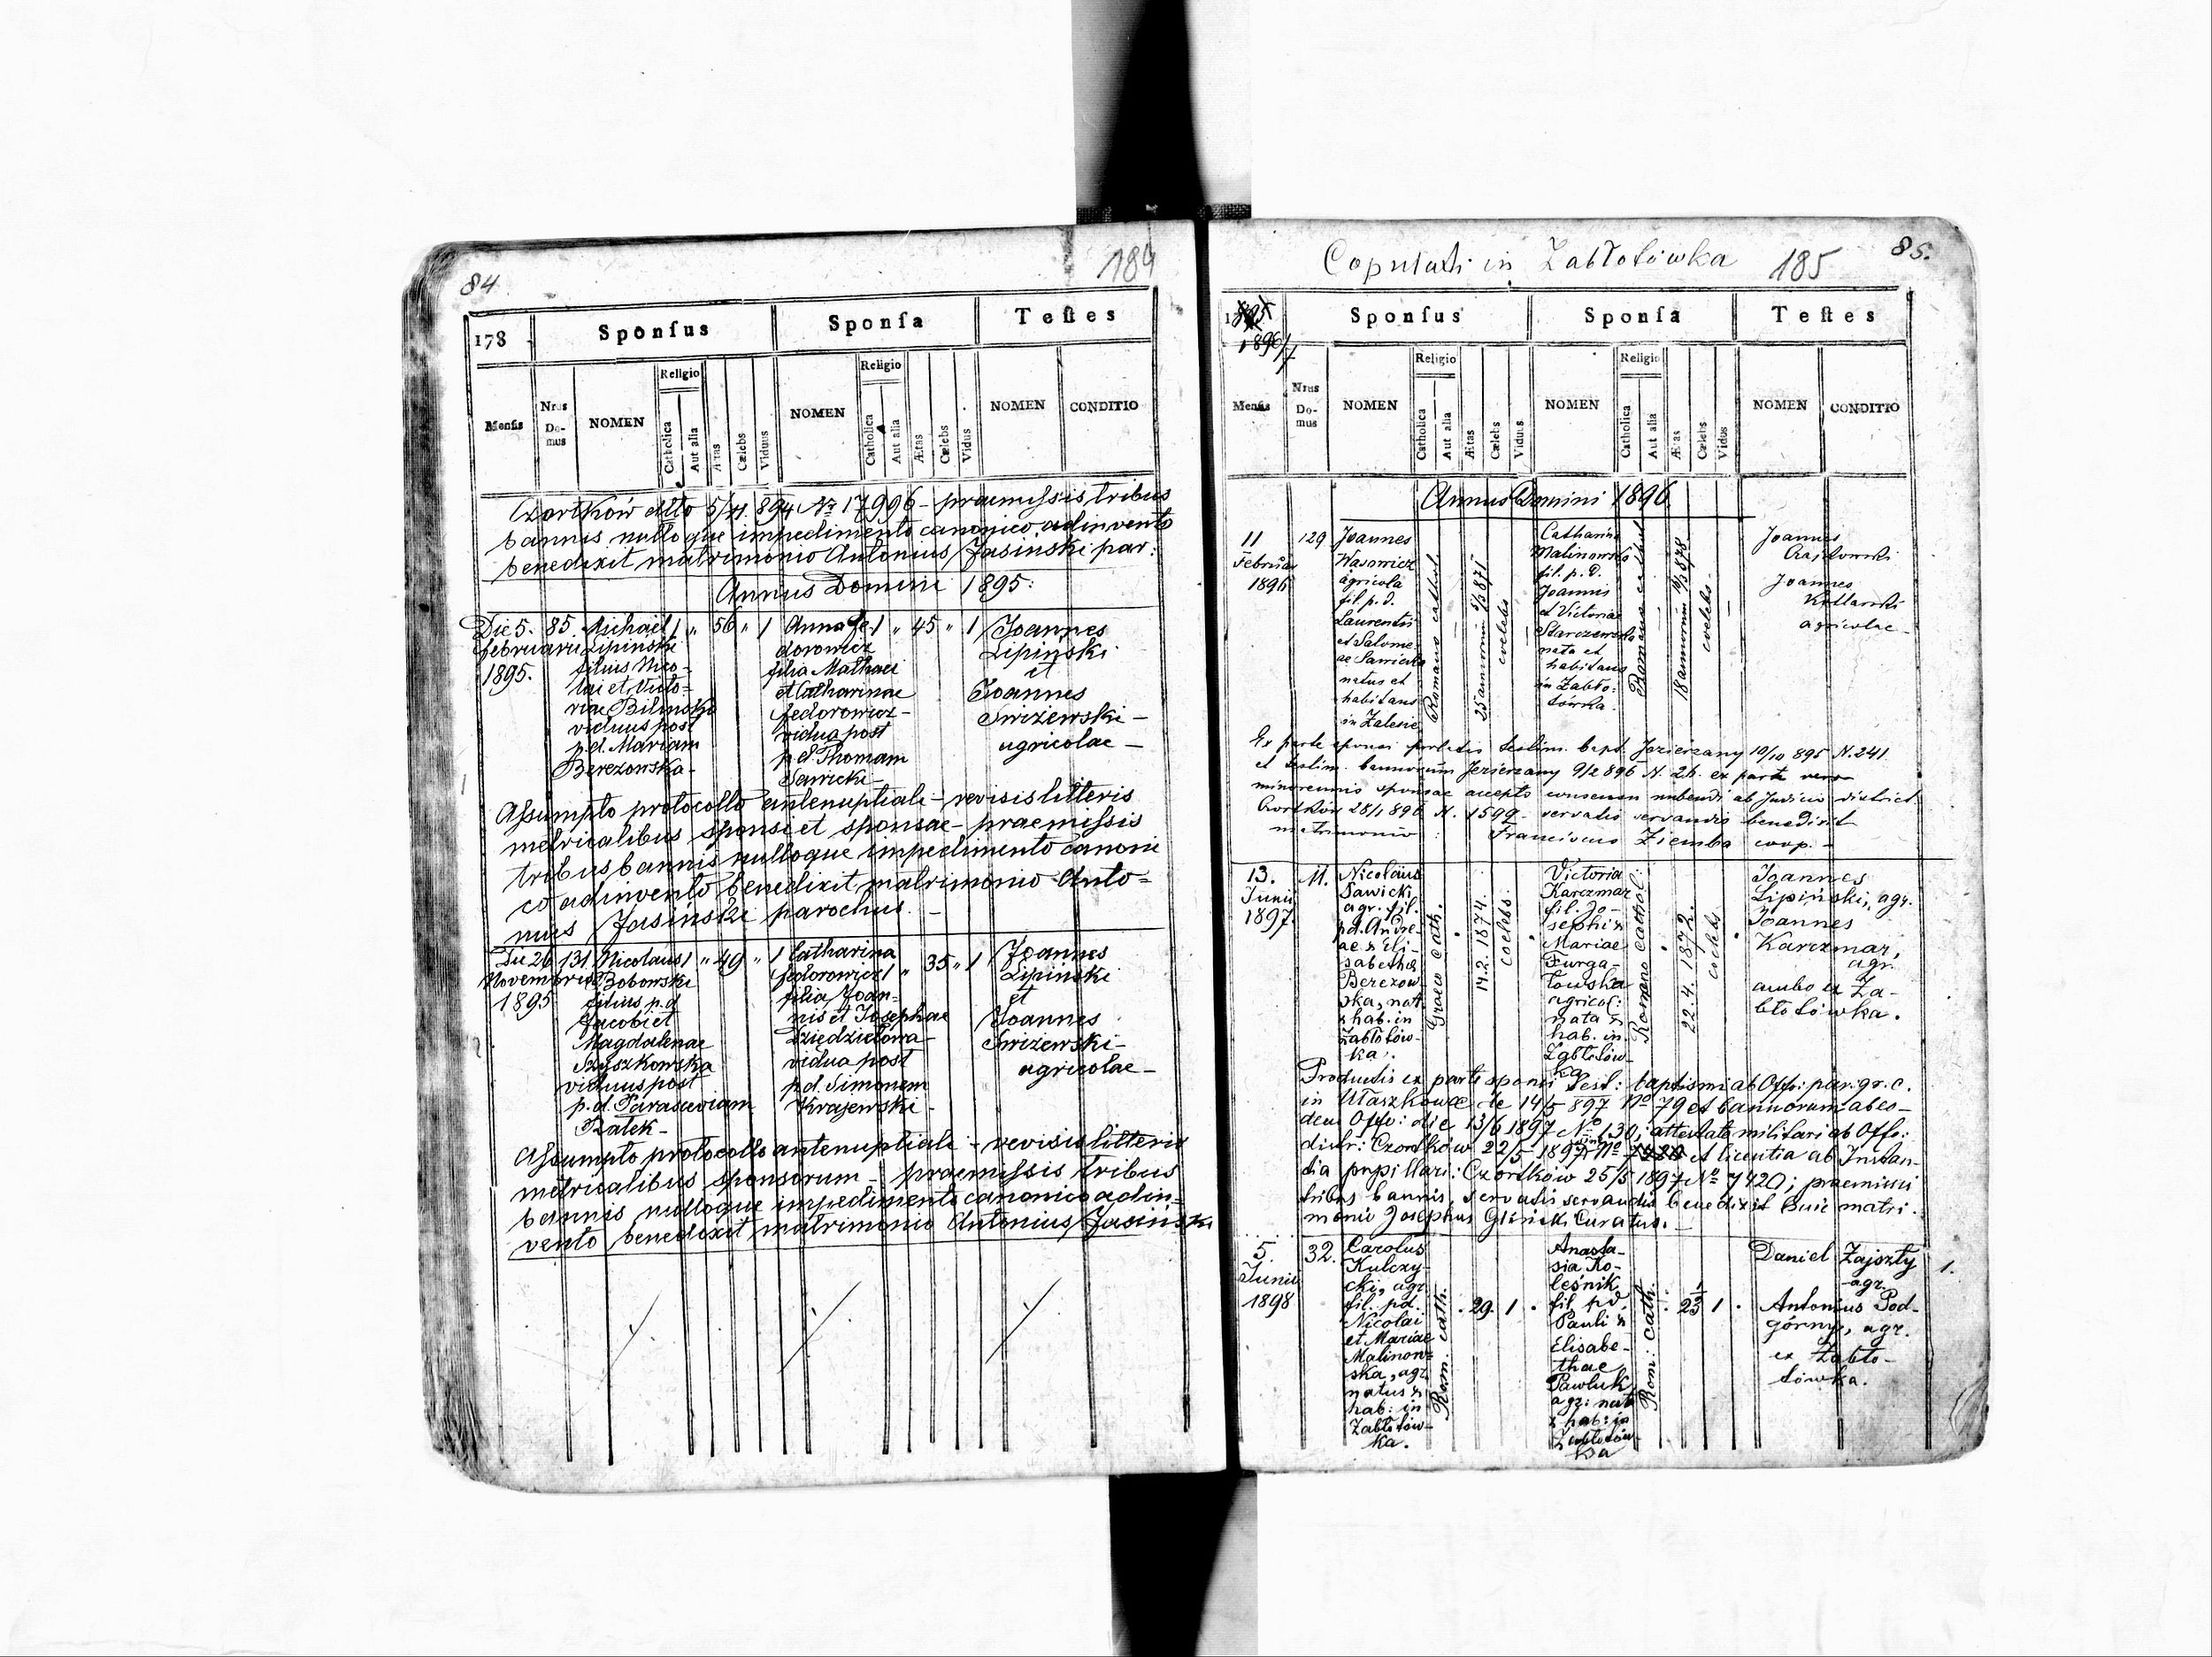 84
184
178
Sponſus
Sponſa
Teſtes
Menſis
Nrus Domus
NOMEN
Religio
Catholica
Aut alia
Ætas
Cœlebs
Viduus
NOMEN
Religio
Catholica
Aut alia
Ætas
Cœlebs
Vidus
NOMEN
CONDITIO
Czortków dtto 5/11 894 Nr 17996 - praemissis tribus
bannis nulloque impedimento canonico adinvento
benedixit matrimonio Antonius Jasiński par:
Annus Domini 1895:
Die 5.
februarii
1895.
85.
Michael
Lipiński
filius Nico-
lai et Victo-
riae Bilinska
viduus post
p.d. Mariam
Berezowska-
1 " 56 " 1
Anna Fe-
dorowicz
filia Mathaei
et Catharinae
Fedorowicz-
vidua post
p.d. Thomam
Sawicki-
1 " 45 " 1
Joannes
Lipiński
et
Joannes
Swiżewski-
agricolae-
Assumpto protocollo antenuptiali - revisis litteris
metricalibus sponsi et sponsae - praemissis
tribus bannis nulloque impedimento canoni
co adinvento benedixit matrimonio Anto=
nius Jasiński parochus. -
Die 26
Novembris
1895
131
Nicolaus
Bobowski
filius p.d
Jacobi et
Magdalenae
Szyszkowska
viduus post
p.d. Parasceviam
Ratek-
1 " 49 " 1
Catharina
Fedorowicz
filia Joan-
nis et Josephae
Dziędzielowa-
vidua post
p.d. Simonem
Krajewski-
1 " 35 " 1
Joannes
Lipiński
et
Joannes
Swiżewski-
agricolae-
Assumpto protocollo antenuptiali - revisis litteris
metricalibus sponsorum - praemissis tribus
bannis nulloque impedimento canonico adin=
vento benedixit matrimonio Antonius Jasiński
Copulati in Zabłotówka
185
85.
1896/7
Sponſus
Sponſa
Teſtes
Menſis
Nrus Domus
NOMEN
Religio
Catholica
Aut alia
Ætas
Cœlebs
Viduus
NOMEN
Religio
Catholica
Aut alia
Ætas
Cœlebs
Vidus
NOMEN
CONDITIO
Annus Domini 1896
11
Februar
1896
129
Joannes
Wąsowicz
agricola
fil p.d.
Laurentii
et Salome-
ae Sawicka
natus et
habitans
in Zalesie
Romano cathol
25 annorum 5/3 871
coelebs
Catharina
Malinowska
fil. p.d.
Joannis
et Victoriae
Starczewska
nata et
habitans
in Zabło-
tówka.
Romano cathol
18 annorum
coelebs
Joannes
Joannes
Kotlarski
agricolae-
Ex parte sponsi prolatis testim. bapt. Jezierzany 19/10 895 N. 241
et testim. bannorum Jezierzany 9/2 896 N. 26. ex parte vero
minorennis sponsae accepto consensu nubendi ab Judicio district.
Czortków 28/1 896 N. 1599- servatis servandis benedixit
matrimonio: Franciscus Ziemba coop. -
13.
Junii
1897
11.
Nicolaus
Sawicki,
agr. fil.
pd. Andre-
ae & Eli-
sabethae
Berezow
ska, nat
& hab. in
Zabłotów-
ka.
Graeco cath.
14.2. 1874.
coelebs
Victoria
Karczmar
fil. Jo-
sephi &
Mariae
Furga-
łowska
agricol:
nata &
hab. in.
Zabłotów-
ka
Romano cathol:
22.4. 1872.
coelebs
Joannes
Lipiński, agr.
Joannes
Karczmar,
agr.
ambo ex Za-
błotówka.
Productis ex parte sponsi Test: baptismi ab Offo: par. gr. c.
in Ułaszkowce de 14/5 897 No 79 et bannorum ab eo-
dem Offo: die 13/6 1897 No 130; attestato militari ab Offo:
distr: Czortków 22/5 1897 et licentia ab Instan-
tia pupillari: Czortków 25/5 1897 No 7420; praemissis
tribus bannis, servatis servandis benedixit huic matri-
monio Josephus Gliński Curatus. -
5.
Junii
1898
32.
Carolus
Kulczy-
cki, agr
fil. pd.
Nicolai
et Mariae
Malinow=
ska, agr
natus &
hab: in
Zabłotów-
ka.
Rom: cath.
29. 1
Anasta-
sia Ko-
leśnik
fil. pd.
Pauli &
Elisabe-
thae
Pawluk
agr: nata
& hab: in
Zabłotów-
ka
Rom: cath:
1
Daniel Zajszły
agr.
Antonius Pod-
górny, agr.
ex Zabło-
tówka.
1.